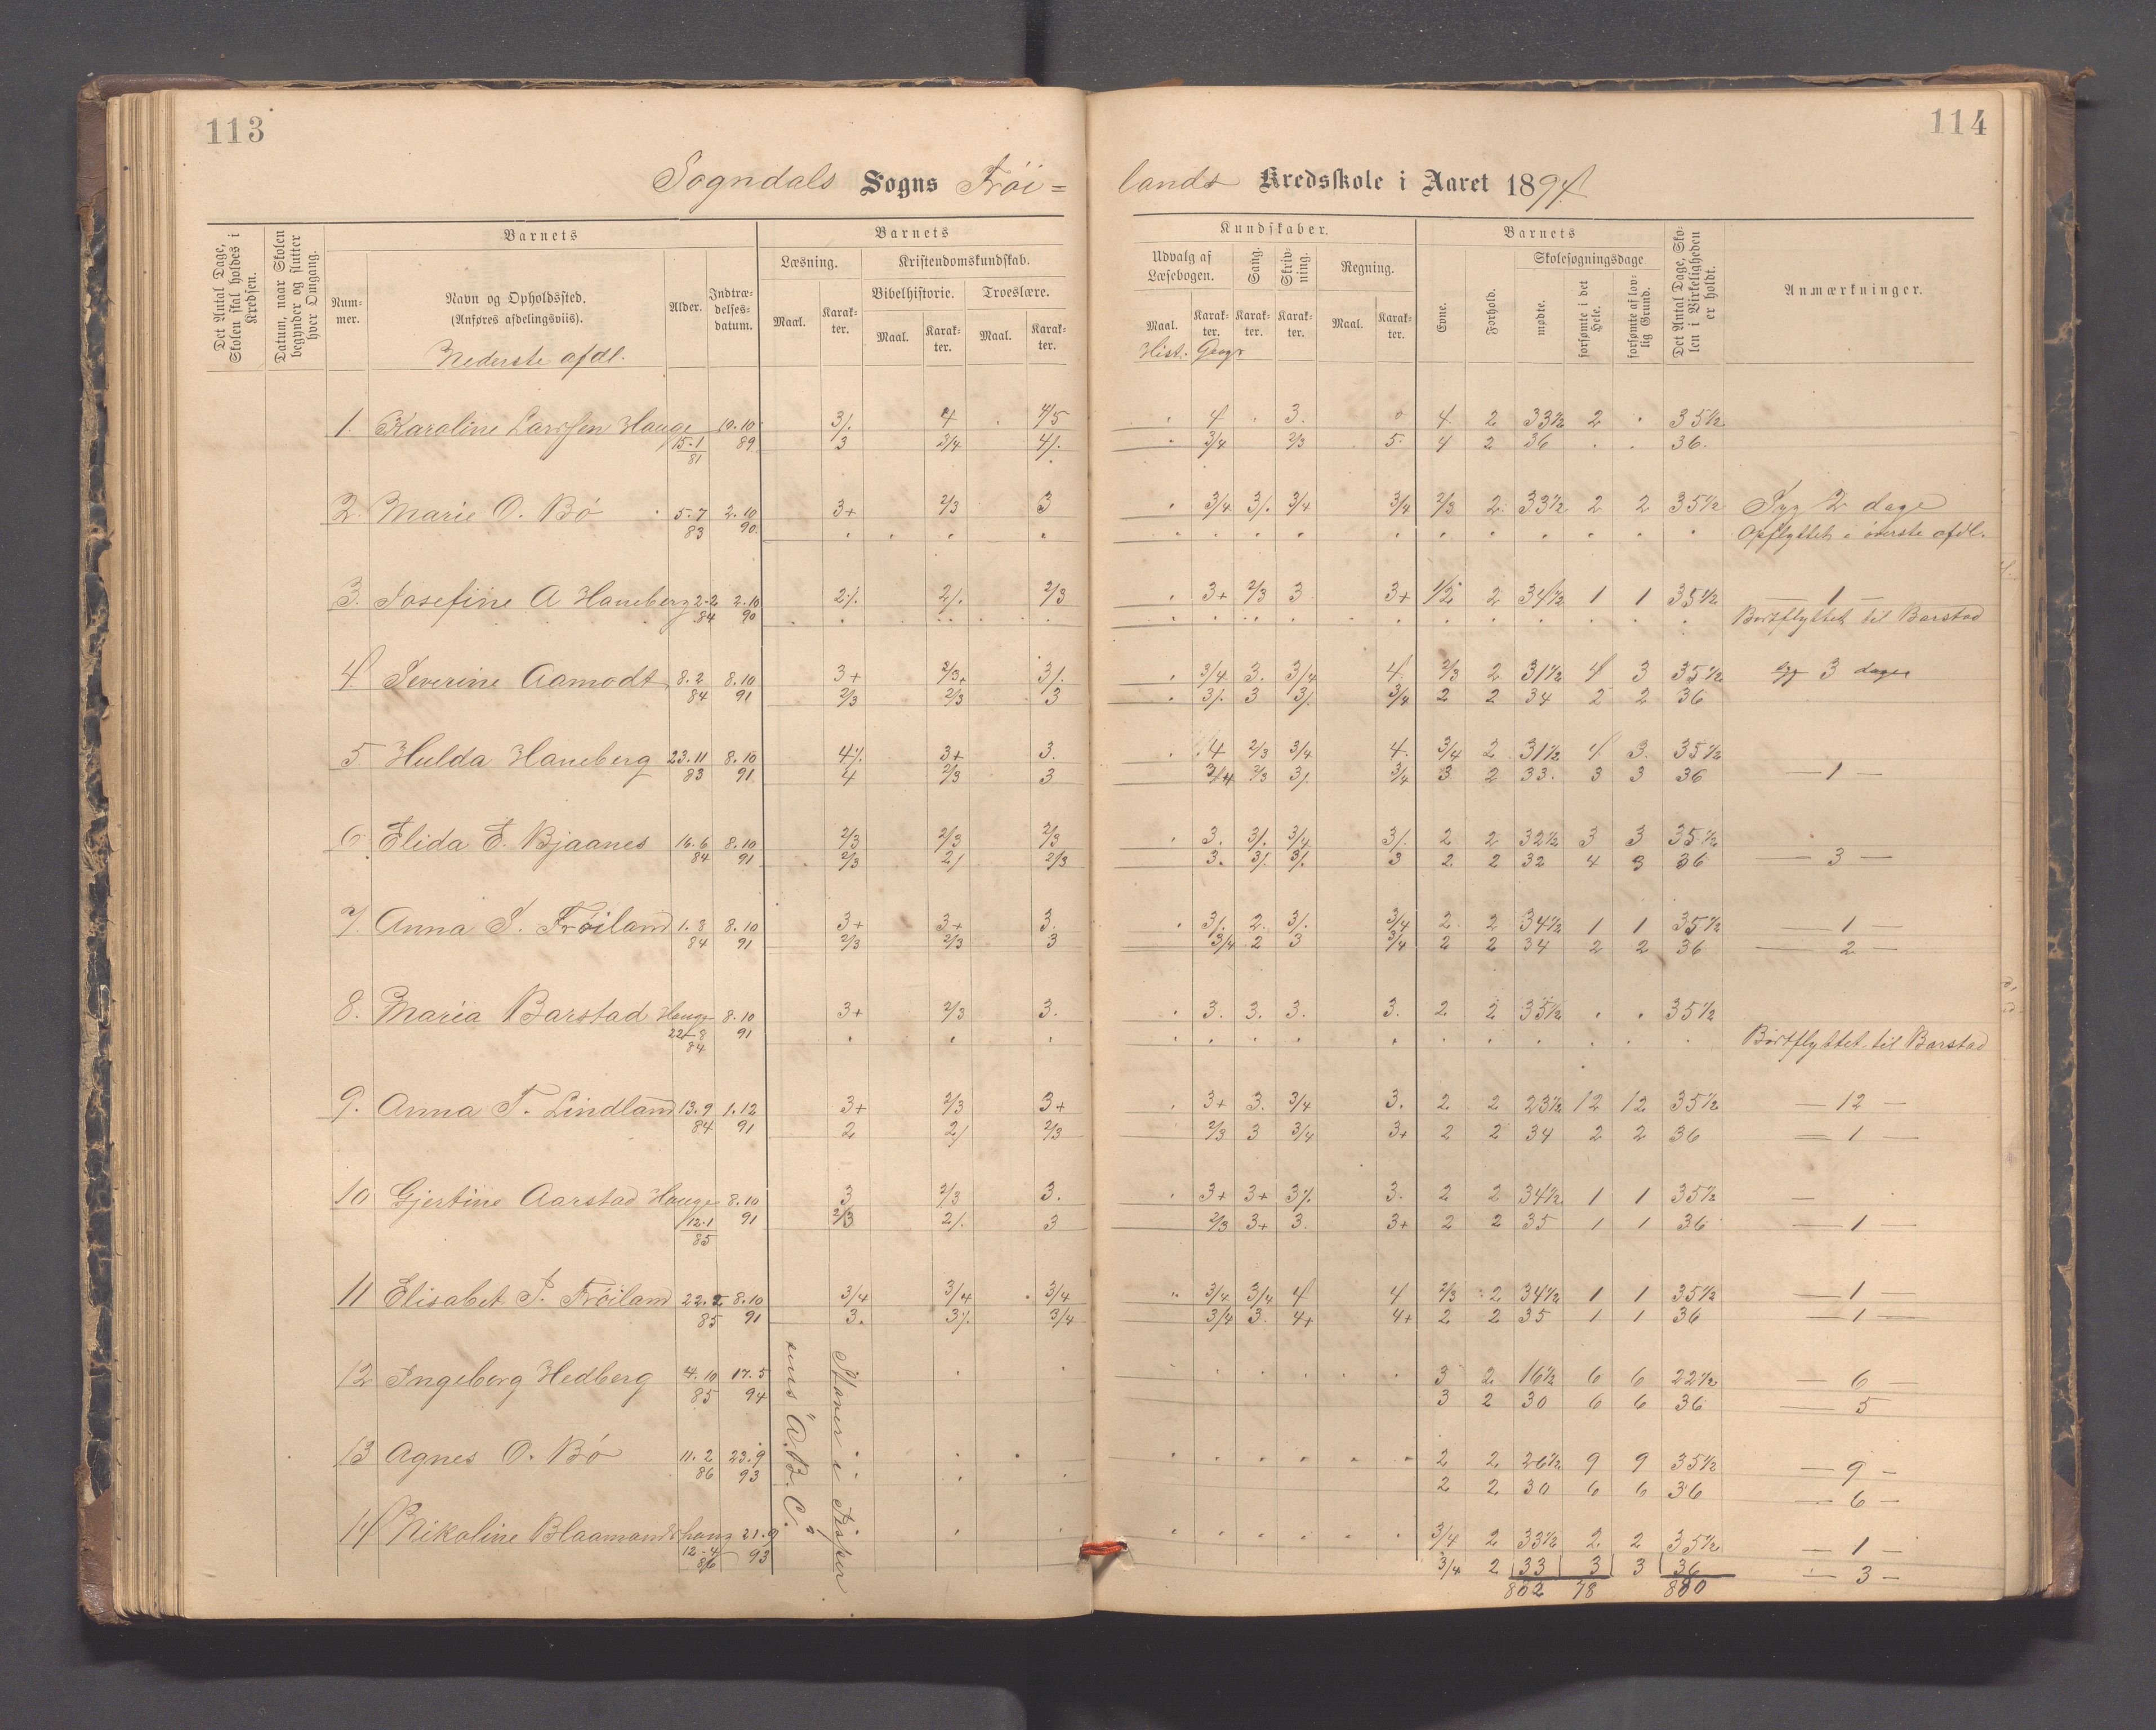 113
114
Sogndals Sogns Frøi=
lands Kredsskole i Aaret 1894.
Det Antal Dage, Skolen skal holdes i Kredsen.
Datum, naar Skolen begynder og slutter hver Omgang.
Barnets
Nummer.
Navn og Opholdssted. (Anføres afdelingsviis).
Alder.
Indtrædelsesdatum.
Barnets
Læsning.
Kristendomskundskab.
Bibelhistorie.
Troeslære.
Maal. Karakter. Maal. Karakter. Maal. Karakter.
Kundskaber.
Udvalg af Læsebogen.
Sang.
Skrivning.
Regning.
Maal. Karakter. Karakter. Karakter. Maal. Karakter.
Barnets
Evne.
Forhold.
Skolesøgningsdage
mødte.
forsømte i det Hele.
forsømte af lovlig Grund.
Det Antal Dage, Skolen i Virkeligheden er holdt.
Anmærkninger.
Nederste afdl.
Hist. Geogr
1. Karoline Larssen Hauge 10.10 3/. 4 4/5 4 3. 4 2 33½ 2 35½
15.1 81 89 3 3/4 4/. 3/4 2/3 5. 4 2 36 36.
2. Marie O. Bö 5.7 2.10 3+ 2/3 3 3/4 3/. 3/4 3/4 2/3 2 33½ 2 2 35½ Syg 2 dage
83 90 Opflyttet i øverste afdl.
3. Josefine A Haneberg 2.2 2.10 2/. 2/. 2/3 3+ 2/3 3 3+ 1/2 2 34½ 1 1 35½ — 1 —
84 90 Bortflyttet til Barstad
4. Severine Aamodt 8.2 8.10 3+ 2/3+ 3/. 3/4 3. 3/4 4 2/3 2 31½ 4 3 35½ syg 3 dage
84 91 2/3 2/3 3 3/. 3 3/. 3/4 2 2 34 2 2 36
5 Hulda Haneberg 23.11 8.10 4/. 3+ 3. 4 2/3 3/4 4. 3/4 2 31½ 4 3. 35½
83 91 4 2/3 3 3/4 2/3 3/. 3/4 3 2 33. 3 3 36 — 1 —
6. Elida E. Bjaanes 16.6 8.10 2/3 2/3 2/3 3. 3/. 3/4 3/. 2 2 32½ 3 3 35½
84 91 2/3 2/ 2/3 3. 3/. 3/. 3 2 2 32 4 3 36 — 3 —
7. Anna S. Frøiland 1.8 8.10 3+ 3+ 3. 3/. 2. 3/. 3/4 2 2 34½ 1 1 35½ — 1 —
84 91 2/3 2/3 3 3/4 2 3 3/4 2 2 34 2 2 36 — 2 —
8. Maria Barstad Hauge 8.10 3+ 2/3 3. 3. 3. 3. 3. 2 2 35½ 35½
22.8 84 91 Bortflyttet til Barstad
9. Anna T. Lindland 13.9 1.12 3+ 2/3 3+ 3+ 3. 3/4 3. 2 2 23½ 12 12 35½ — 12 —
84 91 2 2/ 2/3 2/3 3 3/4 3+ 2 2 34 2 2 36 — 1 —
10 Gjertine Aarstad Hauge 8.10 3 2/3 3. 3+ 3+ 3/. 3. 2 2 34½ 1 1 35½ —
12.1 85 91 2/3 2/. 3 2/3 3+ 3. 3+ 2 2 35 1 1 36 — 1 —
11 Elisabet S. Frøiland 22.2 8.10 3/4 3/4 3/4 3/4 3/4 4 4 2/3 2 34½ 1 1 35½ — 1 —
85 91 3. 3/. 3/4 3/4 3. 4+ 4+ 2 2 35 1 1 36 — 1 —
12 Ingeborg Hedberg 4.10 17.5 3 2 16½ 6 6 22½ — 6 —
85 94 3 2 30 6 6 36 — 5
13 Agnes O. Bö 11.2 23.9 2 2 26½ 9 9 35½ — 9 —
86 93 2 2 30 6 6 36 — 6 —
14 Nikoline Blaamandshang 21.9 3/4 2 33½ 2 2 35½ — 1 —
12.4 86 93 3/4 2 33 3 3 36 — 3 —
802 78 880
sens "A.B.C."